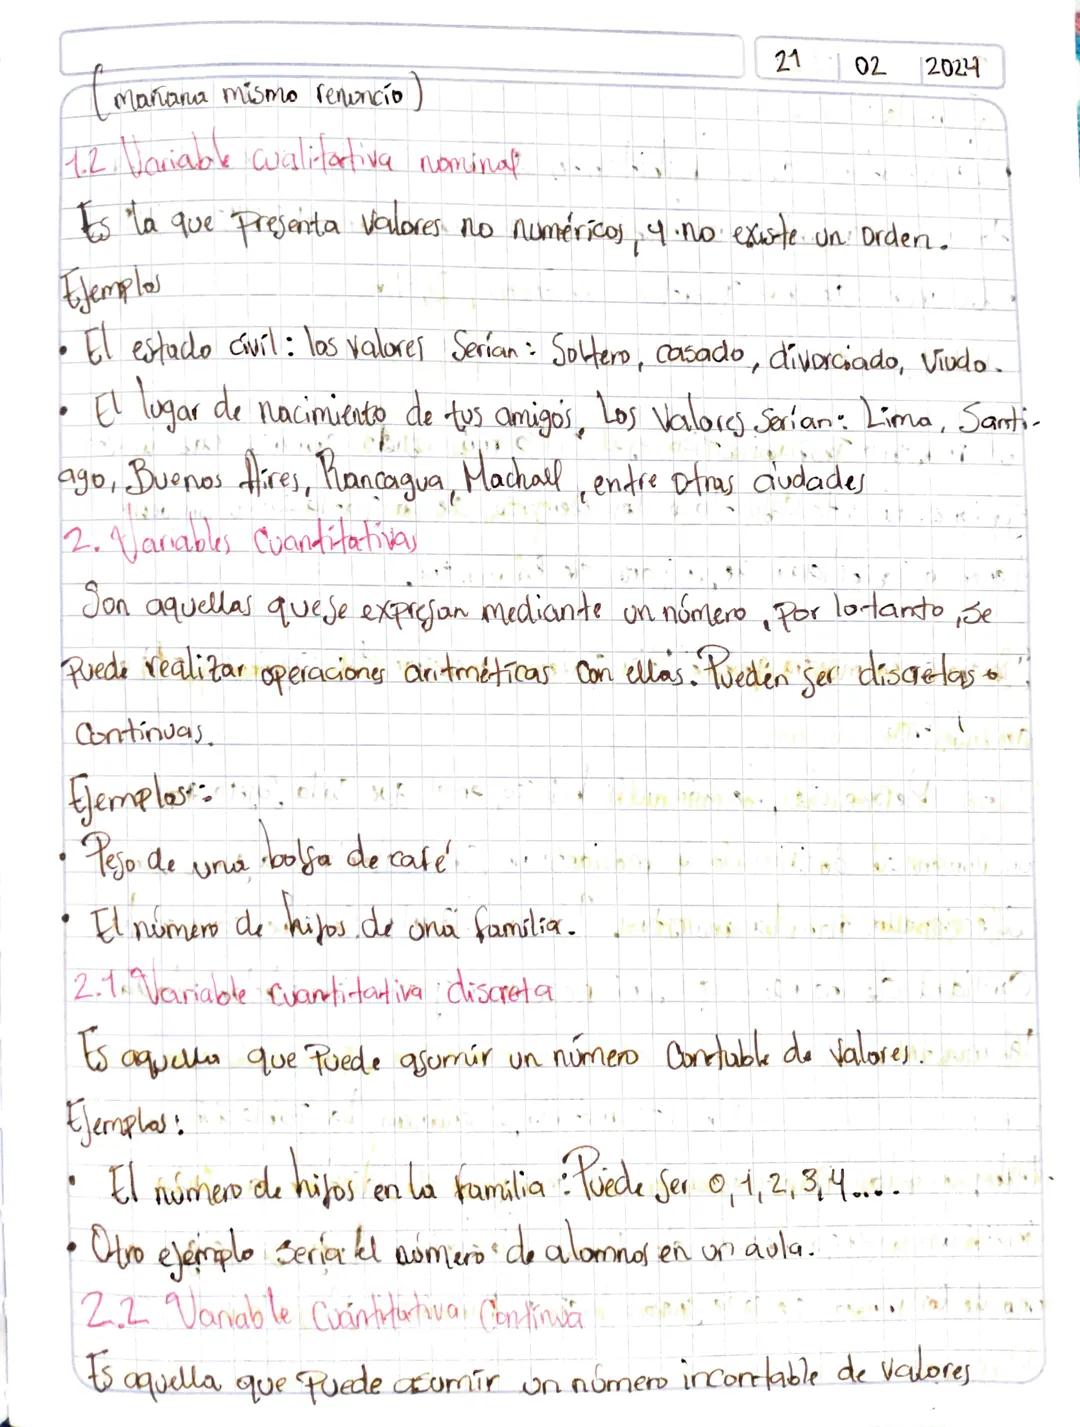 21 02 2024
(mañana mismo renuncio)
1.2. Variable cualitativa nominal
Es la que Presenta Valores no numéricos, y no existe un orden.
Ejemplos
• El estado civil: los valores Serían: Soltero, casado, divorciado, Viudo.
• El lugar de nacimiento de tus amigos, Los Valores Serían: Lima, Santi-
ago, Buenos Aires, Rancagua, Machall, entre otras ciudades
2. Variables Cuantitativas
Son aquellas que se expresan mediante un número, Por lo tanto, se
Puede realizar operaciones aritméticas con ellas. Pueden ser discretas o
Continuas.
Ejemplos:
• Peso de una bolsa de café
• El número de hijos de una familia.
2.1. Variable cuantitativa discreta
Es aquella que Puede asumir un número Contable de Valores.
Ejemplos:
• El número de hijos en la familia: Puede Ser 0, 1, 2, 3, 4....
• Otro ejemplo sería el número de alumnos en un aula.
2.2 Variable Cuantitativa Continua
Es aquella que Puede asumir un número incontable de Valores